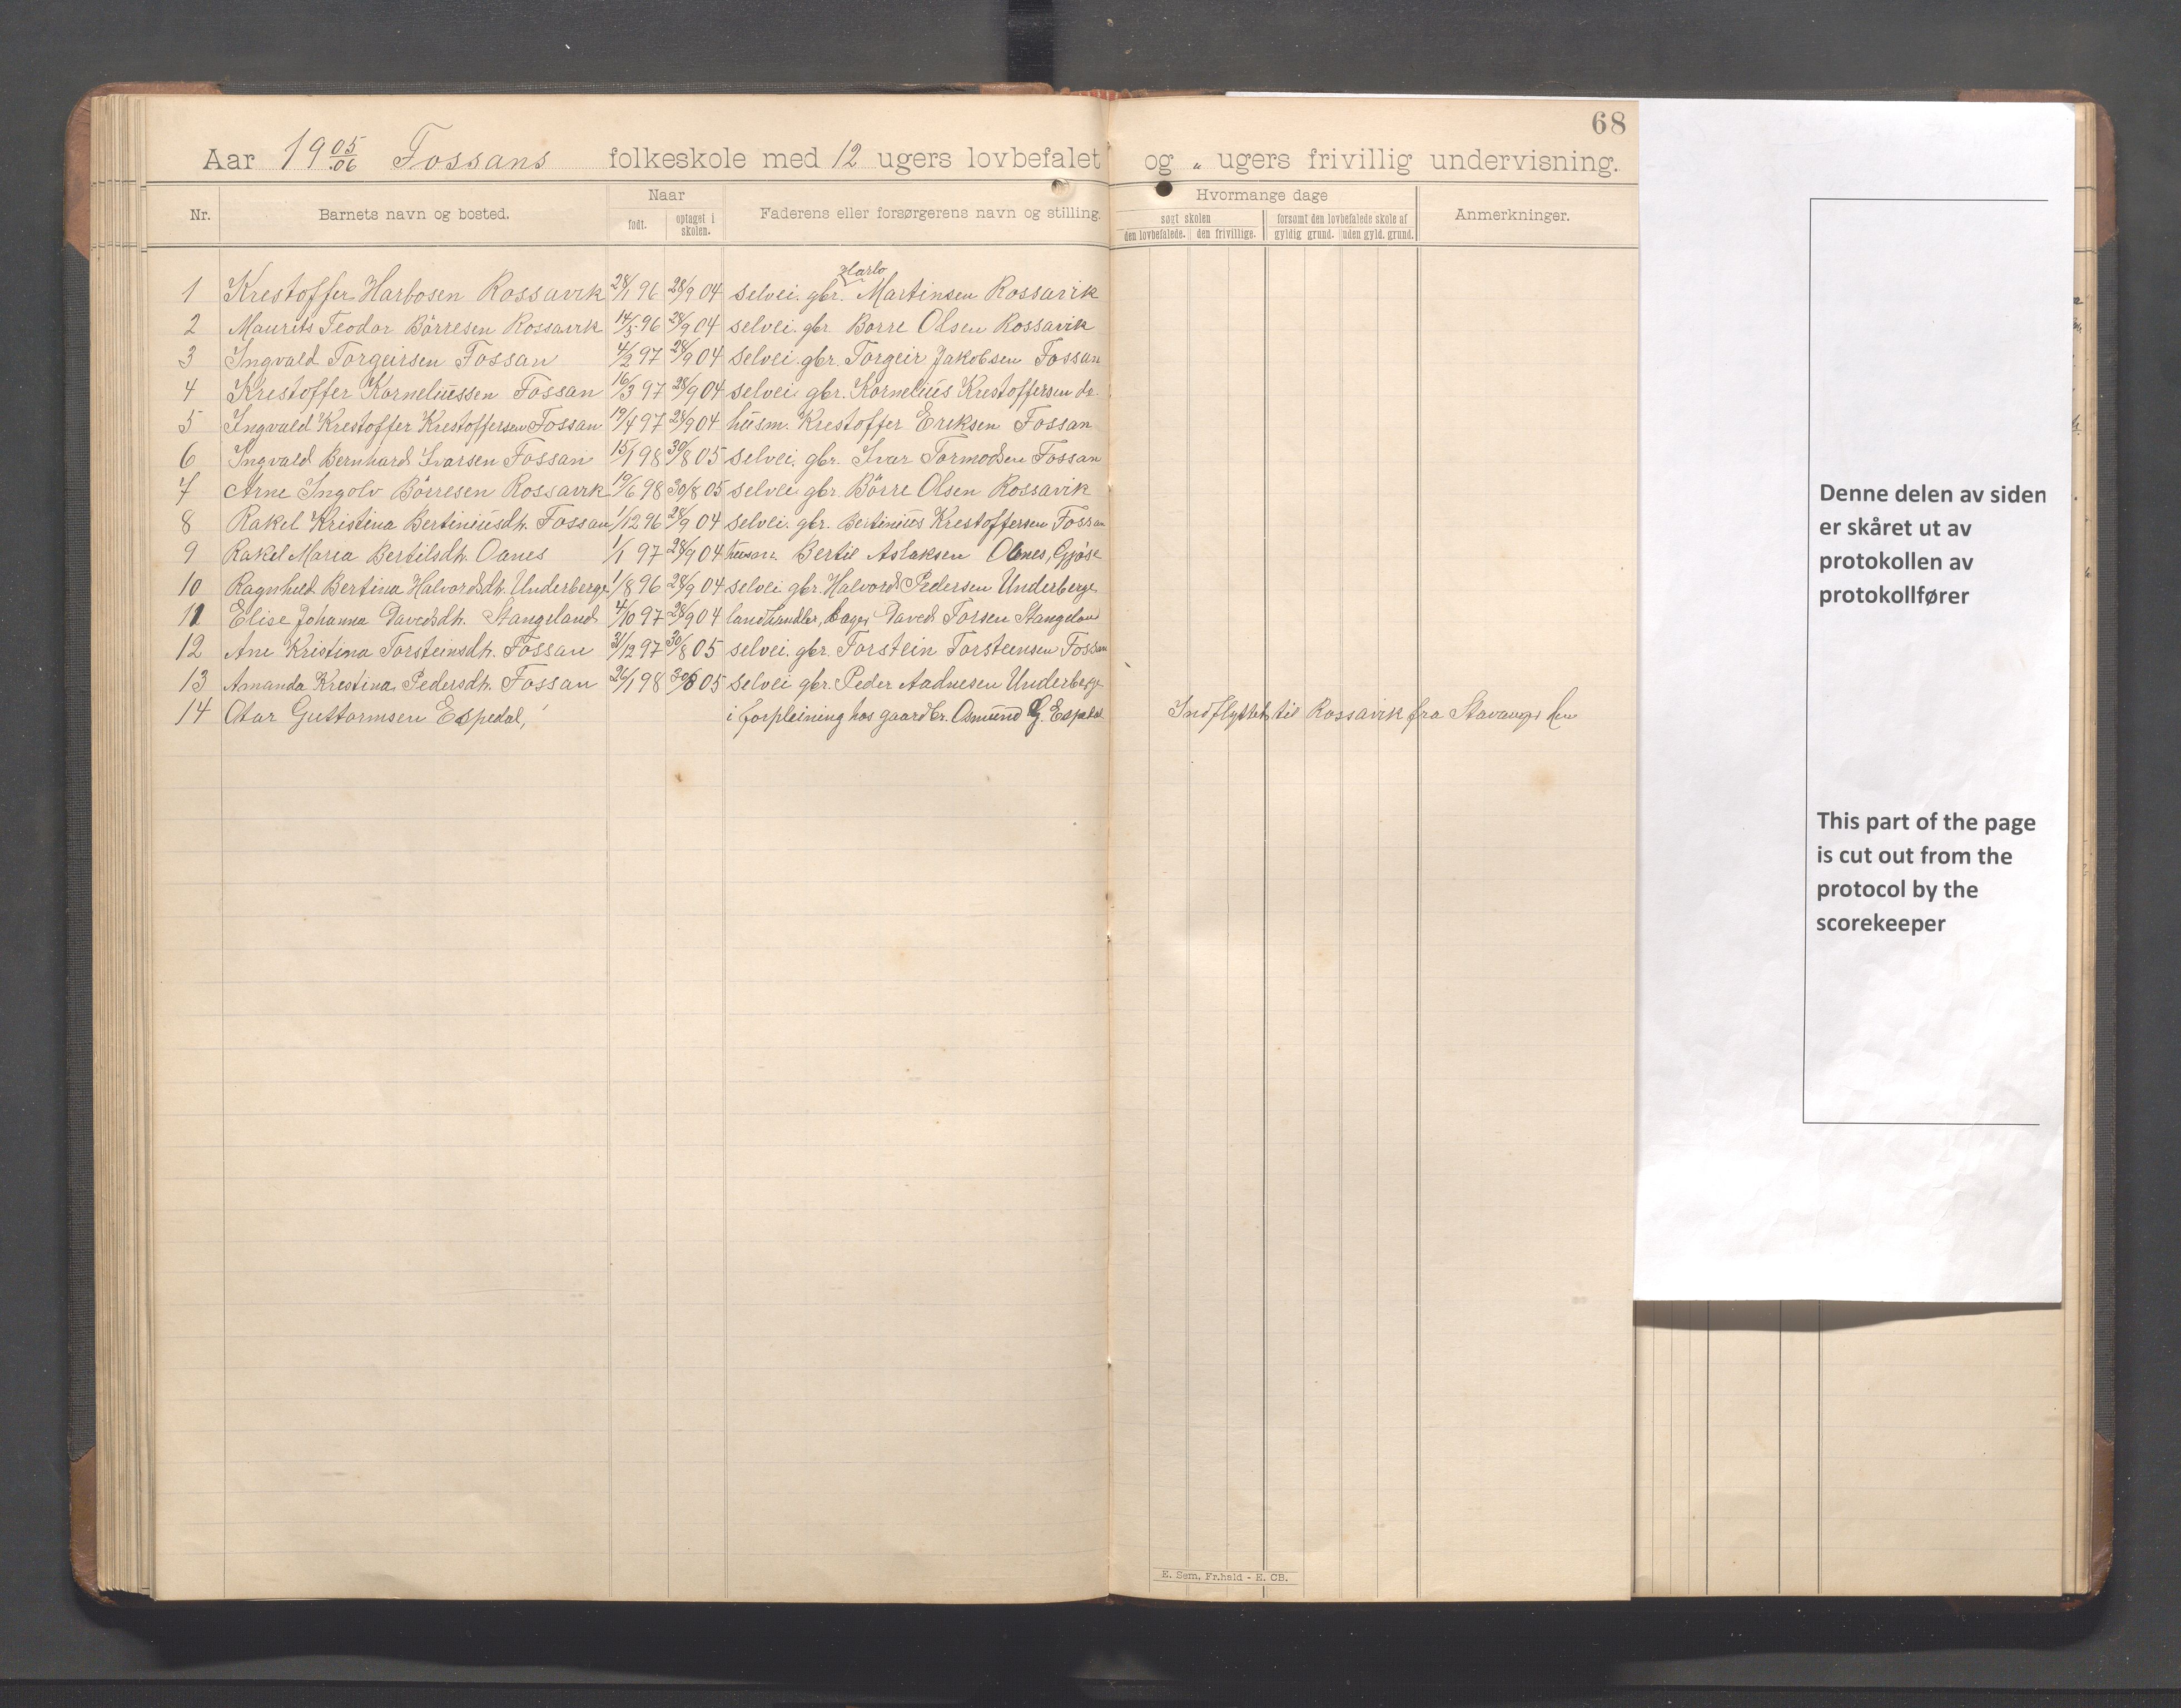 68
Aar 19 05/06 Fossans folkeskole med 12 ugers lovbefalet og „ ugers frivillig undervisning.
Nr. Barnets navn og bosted. Naar født. optaget i skolen. Faderens eller forsørgerens navn og stilling. Hvormange dage søgt skolen den lovbefalede. den frivillige. forsømt den lovbefalede skole af gyldig grund. uden gyld. grund. Anmerkninger.
1 Krestoffer Harbosen Rossavik 28/1 96 28/9 04 selvei. gbr. Martinsen Rossavik
2 Maurits Teodor Börresen Rossavik 14/5 96 28/9 04 selvei. gbr. Börre Olsen Rossavik
3 Ingvald Torgeirsen Fossan 4/2 97 28/9 04 selvei. gbr. Torgeir Jakobsen Fossan
4 Krestoffer Korneliussen Fossan 16/3 97 28/9 04 selvei. gbr. Kornelius Krestoffersen do.
5 Ingvald Krestoffer Krestoffersen Fossan 19/4 97 28/9 04 husm. Krestoffer Eriksen Fossan
6 Ingvald Bernhard Ivarsen Fossan 15/1 98 30/8 05 selvei. gbr. Ivar Tormodsen Fossan
7 Arne Ingolv Börresen Rossavik 19/6 98 30/8 05 selvei. gbr. Börre Olsen Rossavik
8 Rakel Kristina Bertiniusdh. Fossan 1/12 96 28/9 04 selvei. gbr. Bertinius Krestoffersen Fossan
9 Rakel Maria Bertilsdh. Oanes 1/1 97 28/9 04 husm. Bertil Aslaksen Oanes,
10 Ragnhild Bertina Halvorsdh. Underberge 1/8 96 28/9 04 selvei gbr. Halvord Pedersen Underberge
11 Elise Johanna Davedsdh. Stangeland 4/10 97 28/9 04 landhandler, Daved Torsen Stangeland
12 Ane Kristina Torsteinsdh. Fossan 31/12 97 30/8 05 selvei. gbr. Torstein Torsteinsen Fossan
13 Amanda Krestina Pedersdh. Fossan 26/1 98 30/8 05 selvei gbr. Peder Aadnesen Underberge
14 Otar Guttormsen Espedal, i forpleining hos gaardbr. Osmund G. Espedal Indflyttet til Rossavik fra Stavanger den
E. Sem, Fr.hald - E. CB.
Denne delen av siden
er skåret ut av
protokollen av
protokollfører
This part of the page
is cut out from the
protocol by the
scorekeeper